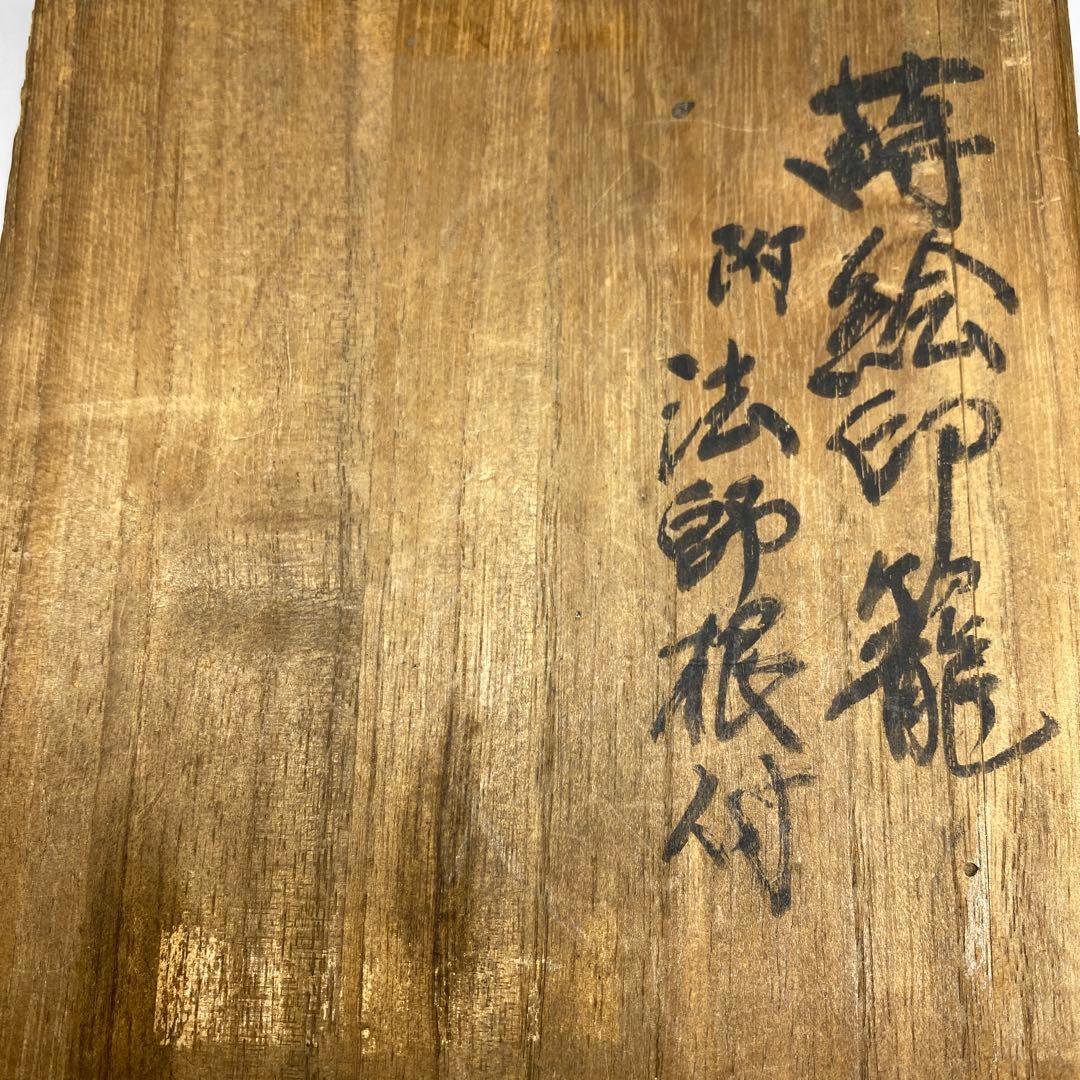 蒔絵印籠
附法師根付